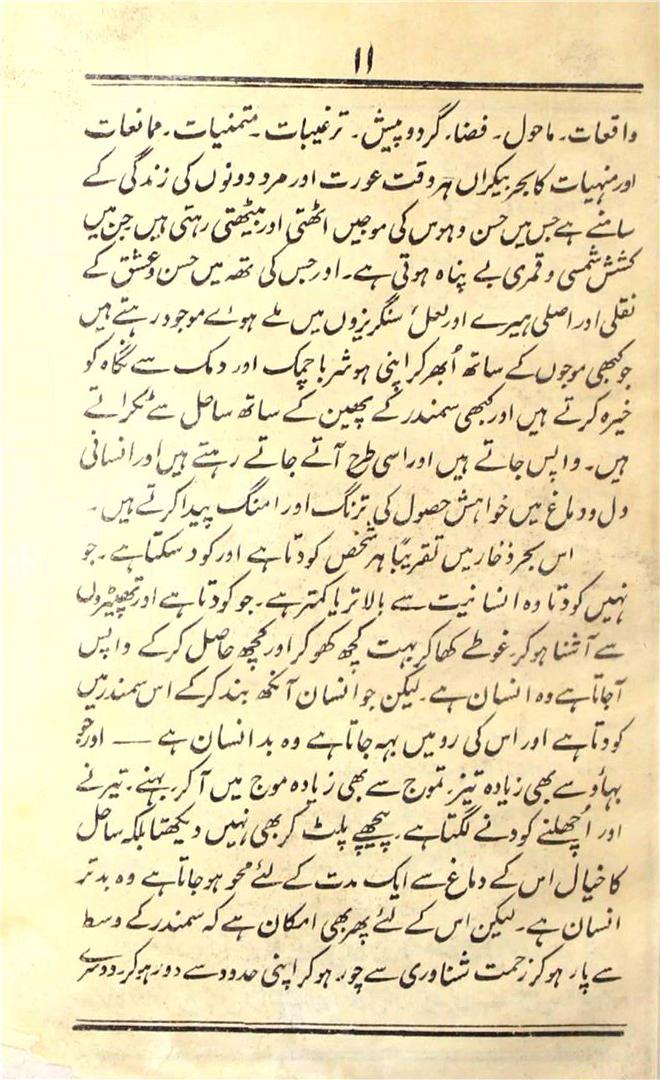 ۱۱
واقعات۔ ماحول۔ فضا۔ گردوپیش۔ ترغیبات۔ متمنیات۔ ممانعات
اور منہیات کا بحر بیکراں ہر وقت عورت اور مرد دونوں کی زندگی کے
سامنے ہے جس میں حسن و ہوس کی موجیں اٹھتی اور بیٹھتی رہتی ہیں جن میں
کشش شمسی و قمری بے پناہ ہوتی ہے۔ اور جس کی تھہ میں حسن و عشق کے
نقلی اور اصلی ہیرے اور لعل، سنگریزوں میں ملے ہوئے موجود رہتے ہیں
جو کبھی موجوں کے ساتھ اُبھر کر اپنی ہوشربا چمک اور دمک سے نگاہ کو
خیرہ کرتے ہیں اور کبھی سمندر کے پھین کے ساتھ ساحل سے ٹکراتے
ہیں۔ واپس جاتے ہیں اور اسی طرح آتے جاتے رہتے ہیں اور انسانی
دل و دماغ میں خواہش حصول کی ترنگ اور امنگ پیدا کرتے ہیں۔
اس بحر ذخار میں تقریبًا ہر شخص کودتا ہے اور کود سکتا ہے۔ جو
نہیں کودتا وہ انسانیت سے بالاتر یا کمتر ہے۔ جو کودتا ہے اور تھپیڑوں
سے آشنا ہو کر۔ غوطے کھا کر بہت کچھ کھو کر اور کچھ حاصل کر کے واپس
آجاتا ہے وہ انسان ہے۔ لیکن جو انسان آنکھ بند کر کے اس سمندر میں
کودتا ہے اور اس کی رو میں بہہ جاتا ہے وہ بد انسان ہے — اور جو
بہاؤ سے بھی زیادہ تیز۔ تموج سے بھی زیادہ موج میں آکر۔ بہنے۔ تیرنے
اور اُچھلنے کودنے لگتا ہے۔ پیچھے پلٹ کر بھی نہیں دیکھتا بلکہ ساحل
کا خیال اس کے دماغ سے ایک مدت کے لئے محو ہو جاتا ہے وہ بدتر
انسان ہے۔ لیکن اس کے لئے پھر بھی امکان ہے کہ سمندر کے وسط
سے پار ہو کر زحمت شناوری سے چور ہو کر اپنی حدود سے دور ہو کر۔ دوسرے